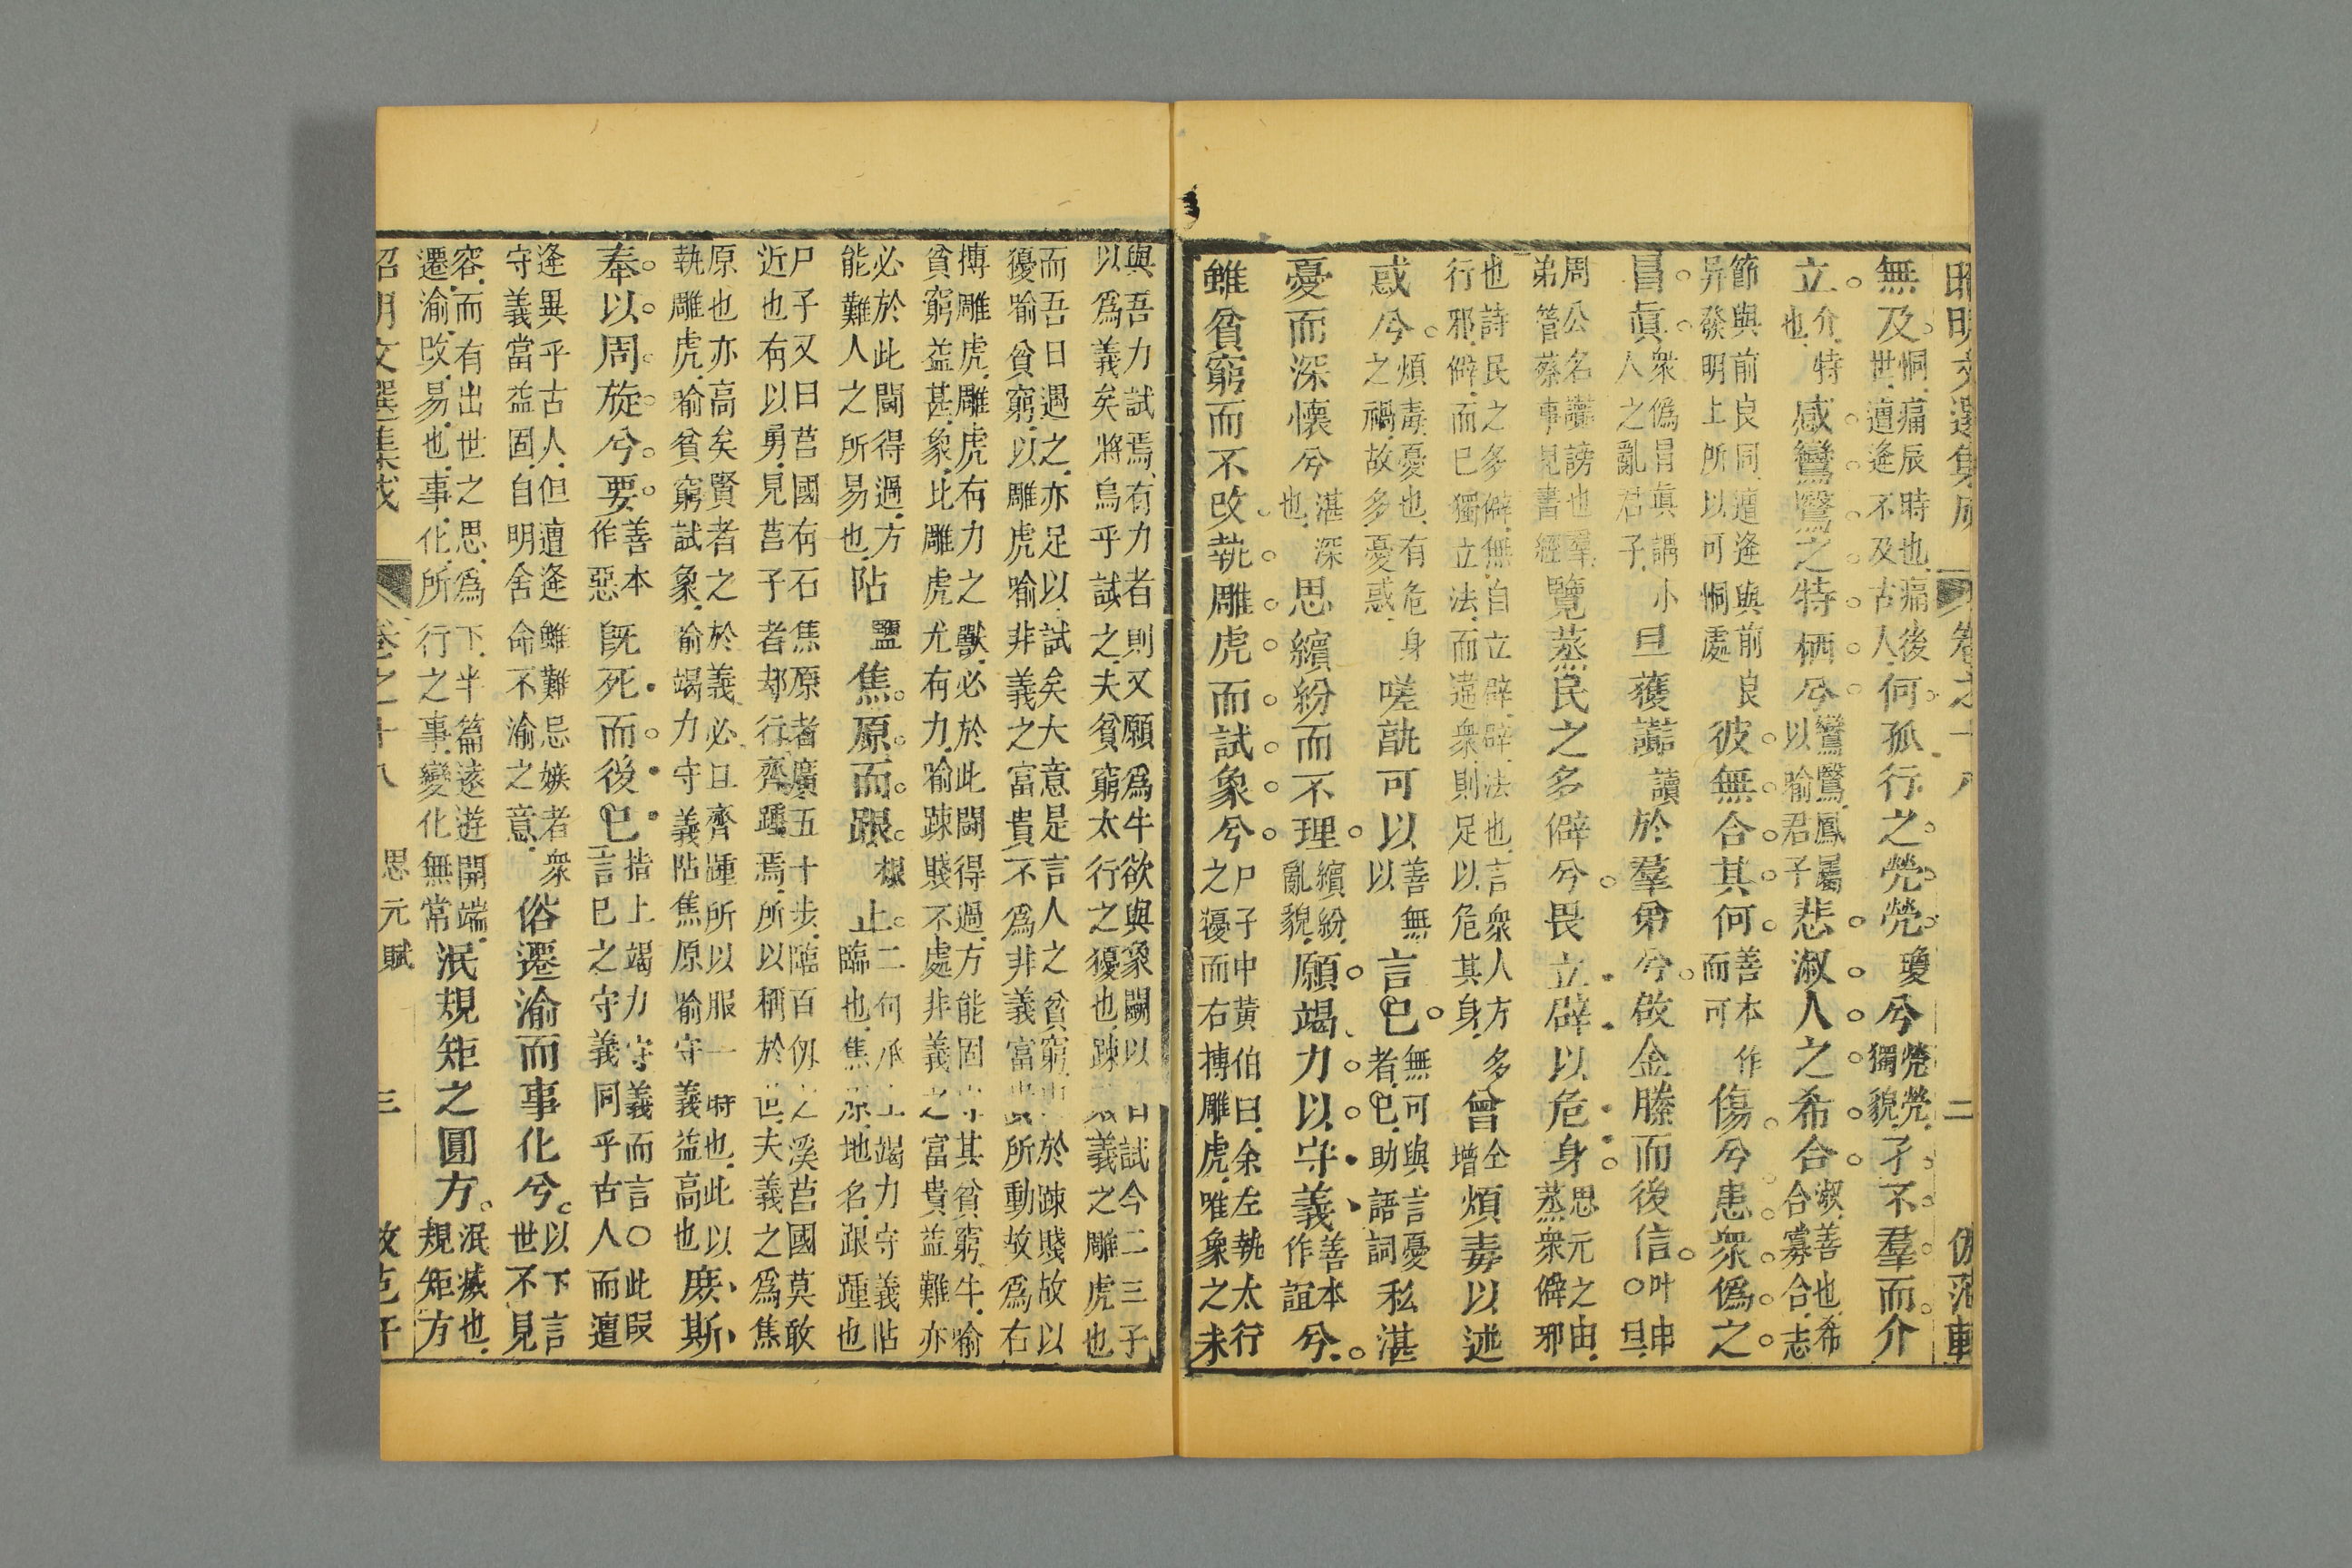 昭明文選集成 卷之十八 二
無及恫痛辰時也痛後世遭逢不及古人何孤行之煢煢瓊兮煢煢獨貌孑不羣而介
立介特也感鸞鷖之特栖兮鸞鷖鳳屬以喻君子悲淑人之希合淑善也希合寡合志
節與前良同遭逢與前良异發明上所以可恫處彼無合其何善本作而可傷兮患衆僞之
冒眞衆僞冒眞謂小人之亂君子旦獲讟讀於羣弟兮啟金縢而後信叶申○旦
周公名讟謗也羣弟管蔡事見書經覽蒸民之多僻兮畏立辟以危身思元之由蒸衆僻邪
也詩民之多僻無自立辟辟法也言衆人方行邪僻而已獨立法而違衆則足以危其身多曾仝增煩毒以迷
惑兮煩毒憂也有危身之禍故多憂惑嗟孰可以善無以言已無可與言憂者已助語詞私湛
憂而深懷兮湛深也思繽紛而不理繽紛亂貌願竭力以守義善本作誼兮
雖貧窮而不改執雕虎而試象兮尸子中黃伯曰余左執太行之獶而右搏雕虎唯象之未
與吾力試焉有力者則又願爲牛欲與象鬬以自試今二三子以爲義矣將烏乎試之夫貧窮太行之獶也疎賤義之雕虎也
而吾日過之亦足以試矣大意是言人之貧窮於疎賤故以獶喻貧窮以雕虎喻非義之富貴不爲非義富貴所動故爲右
搏雕虎雕虎有力之獸必於此鬬得過方能固守其貧窮牛喻貧窮益甚象比雕虎尤有力喻疎賤不處非義之富貴益難亦
必於此鬬得過方能難人之所易也阽鹽焦原而跟根止二句承上竭力守義阽臨也焦原地名跟踵也
尸子又曰莒國有石焦原者廣五十步臨百仞之溪莒國莫敢近也有以勇見莒子者却行齊踵焉所以稱於世夫義之爲焦
原也亦高矣賢者之於義必且齊踵所以服一時也此以執雕虎喻貧窮試象喻竭力守義阽焦原喻守義益高也庶斯
奉以周旋兮要善本作惡旣死而後已指上竭力守義而言○此段言已之守義同乎古人而遭
逢異乎古人但遭逢雖難忌嫉者衆守義當益固自明舍命不渝之意俗遷渝而事化兮以下言世不見
容而有出世之思爲下半篇遠遊開端遷渝攺易也事化所行之事變化無常泯規矩之圓方泯滅也規矩方
昭明文選集成 卷之十八 思元賦 三